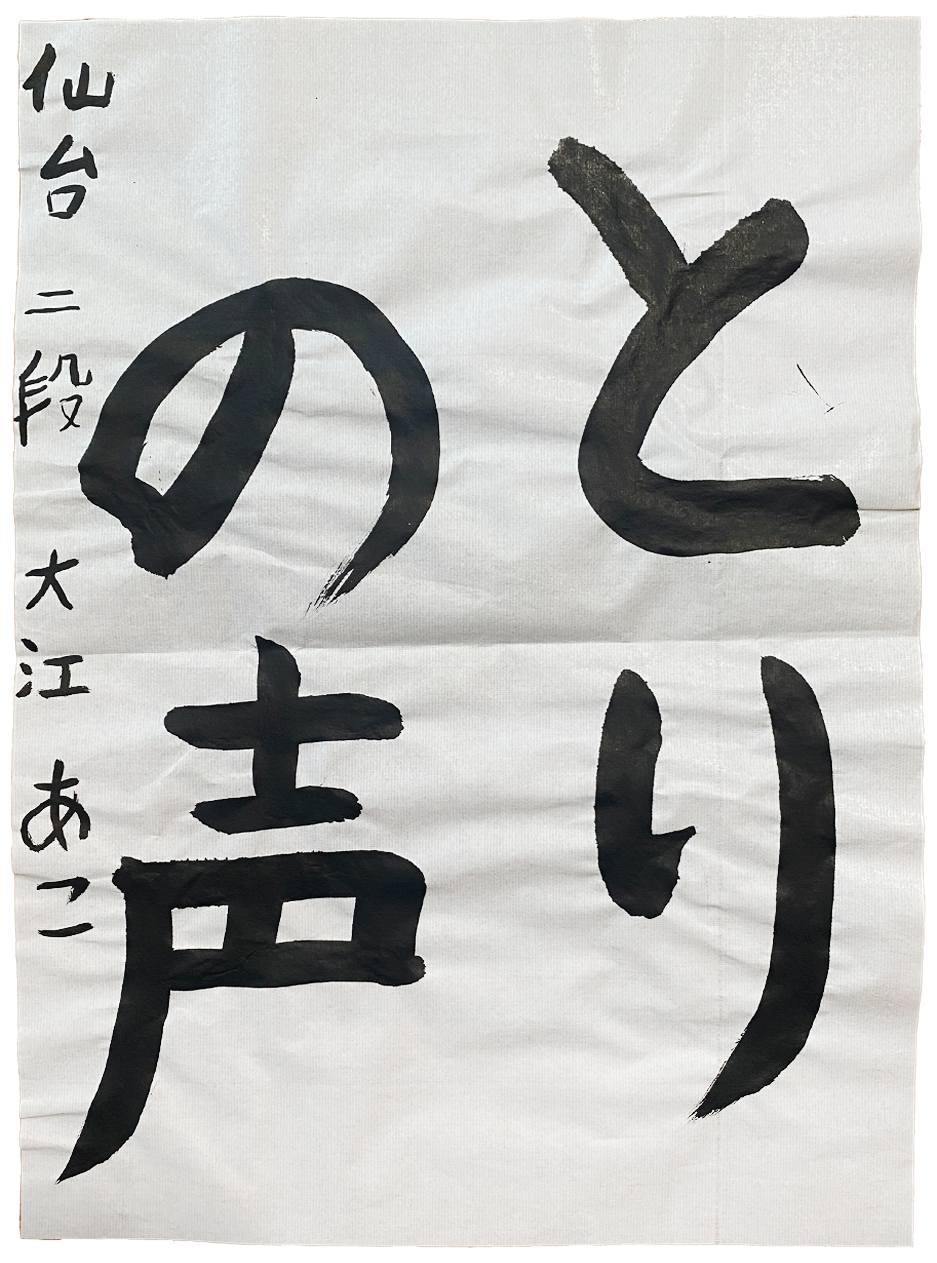 とり
の声
仙台 二段 大江 あこ